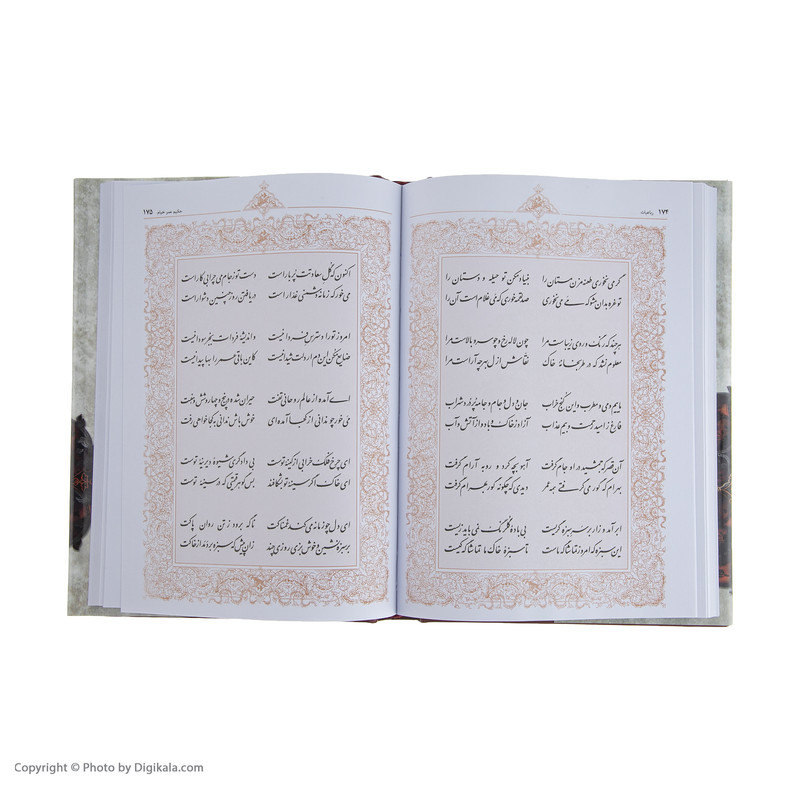 ۱۷۴ رباعیات
گر می نخوری طعنه مزن مستان را بنیاد مکن تو حیله و دستان را
تو غره بدان مشو که می می نخوری صد لقمه خوری که می غلام است آن را
هر چند که رنگ و روی زیباست مرا چون لاله رخ و چو سرو بالاست مرا
معلوم نشد که در طربخانه خاک نقاش ازل بهر چه آراست مرا
ماییم و می و مطرب و این کنج خراب جان و دل و جام و جامه پر درد شراب
فارغ ز امید رحمت و بیم عذاب آزاد ز خاک و باد و از آتش و آب
آن قصر که جمشید در او جام گرفت آهو بچه کرد و روبه آرام گرفت
بهرام که گور می گرفتی همه عمر دیدی که چگونه گور بهرام گرفت
ابر آمد و زار بر سر سبزه گریست بی باده گلرنگ نمی باید زیست
این سبزه که امروز تماشاگه ماست تا سبزه خاک ما تماشاگه کیست
۱۷۵ حکیم عمر خیام
اکنون که گل سعادتت پر بار است دست تو ز جام می چرا بی کار است
می خور که زمانه دشمنی غدار است دریافتن روز چنین دشوار است
امروز تو را دسترس فردا نیست و اندیشه فردات بجز سودا نیست
ضایع مکن این دم ار دلت شیدا نیست کاین باقی عمر را بها پیدا نیست
ای آمده از عالم روحانی تفت حیران شده در پنج و چهار و شش و هفت
می خور چو ندانی از کجا آمده ای خوش باش ندانی به کجا خواهی رفت
ای چرخ فلک خرابی از کینه توست بی دادگری شیوه دیرینه توست
ای خاک اگر سینه تو بشکافند بس گوهر قیمتی که در سینه توست
ای دل چو زمانه می کند غمناکت ناگه برود ز تن روان پاکت
بر سبزه نشین و خوش بزی روزی چند زان پیش که سبزه بر دمد از خاکت
Copyright © Photo by Digikala.com